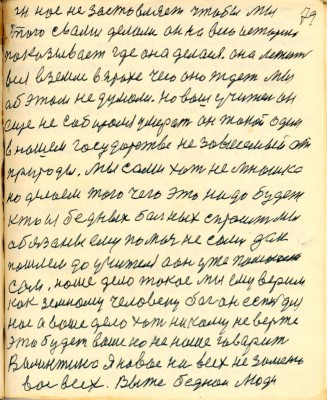 79
нас не заставляет чтобы мы
этого сами делали он на весь историю
показывает где она делалася. она лежит
вся в земли в прахе чего оно ждет мы
об этом не думаем. Но ваш учитель он
еще не собирался умерать он такой один
в нашем государстве не зависемый от
природы. мы сами хот не много
но делаем того чего это надо будет
кто из бедных болных спросит мы
обязаны ему помоч не сами дак
пошлем до учителя а он уже
сам. наше дело такое мы ему верим
как земному человеку бог он есть для
нас а ваше дело хот никому не верте
это будет ваше но не наше говарит
Валинтино Я новое на всех не
вас всех. Вы же бедныи люди